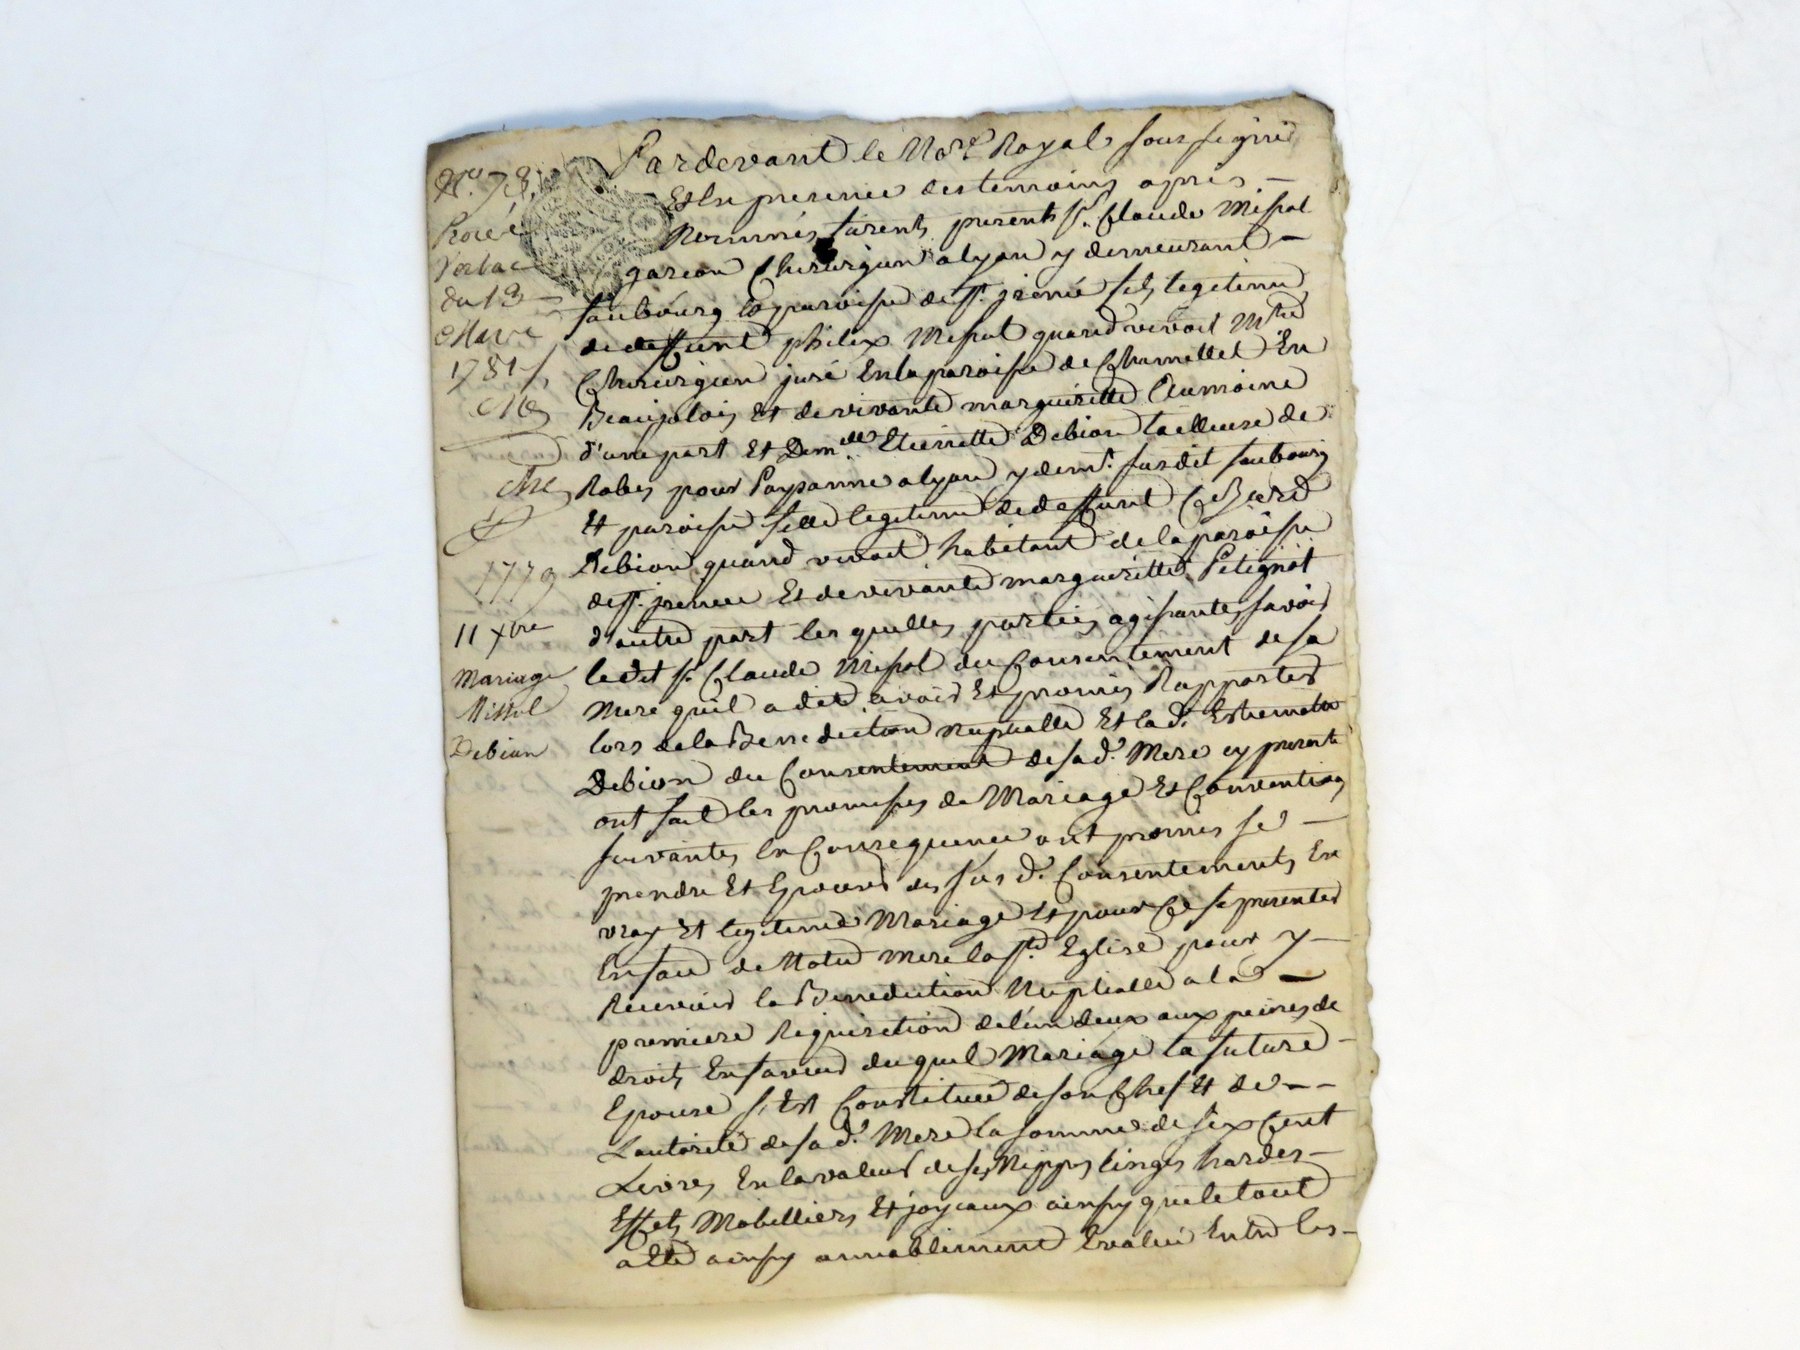 Pardevant le No.re Royal soussigné
Et En presence des temoins apres –
Nommés furent presents Sr. Claude Missol
garcon Chirurgien a lyon y demeurant –
faubourg & paroisse de St. jrenée fils legitime
de deffunt philix Missol quand vivoit Mtre
Chirurgien juré En la paroisse de Chamellet En
Beaujolois Et de vivante margueritte Aumoine
d'une part Et Demelle Etiennette Debion tailleuse de
Robes pour Paysanne a lyon y demt. susdit faubourg
Et paroisse fille legitime de deffunt
Debion quand vivoit habitant de la paroisse
de St. jrenée Et de vivante margueritte Petignot
d'autre part les quelles parties agissantes savoir
ledit Sr. Claude Missol du Consentement de sa
Mere quil a dit avoir Et promis Rapporter
lors de la Benediction Nuptialle Et la d. Estiennette
Debion du Consentement de sa d. Mere cy presente
ont fait les promesses de Mariage Et Conventions
suivantes En Consequence ont promis se –
prendre Et Epouser des sus d. Consentements En
vray Et legitime Mariage Et pour Ce se presenter
En face de Notre mere la Ste. Eglise pour y –
Recevoir la Benediction Nuptialle a la –
premiere Requisition de l'un deux aux peines de
droits En faveur du quel Mariage la future –
Epouse s'est Constituée de son Chef Et de – –
Lautorité de sa d. Mere la somme de six Cent
Livres En la valeur de ses Nippes linges hardes –
Effets Mobilliers Et joyeaux ainsy que le tout
a Eté ainsy amiablement Evalué Entre les –
No. 78,
Procé
Verbac
du 13 –
Mars
1781
1779
11 xbre
Mariage
Missol
Debion